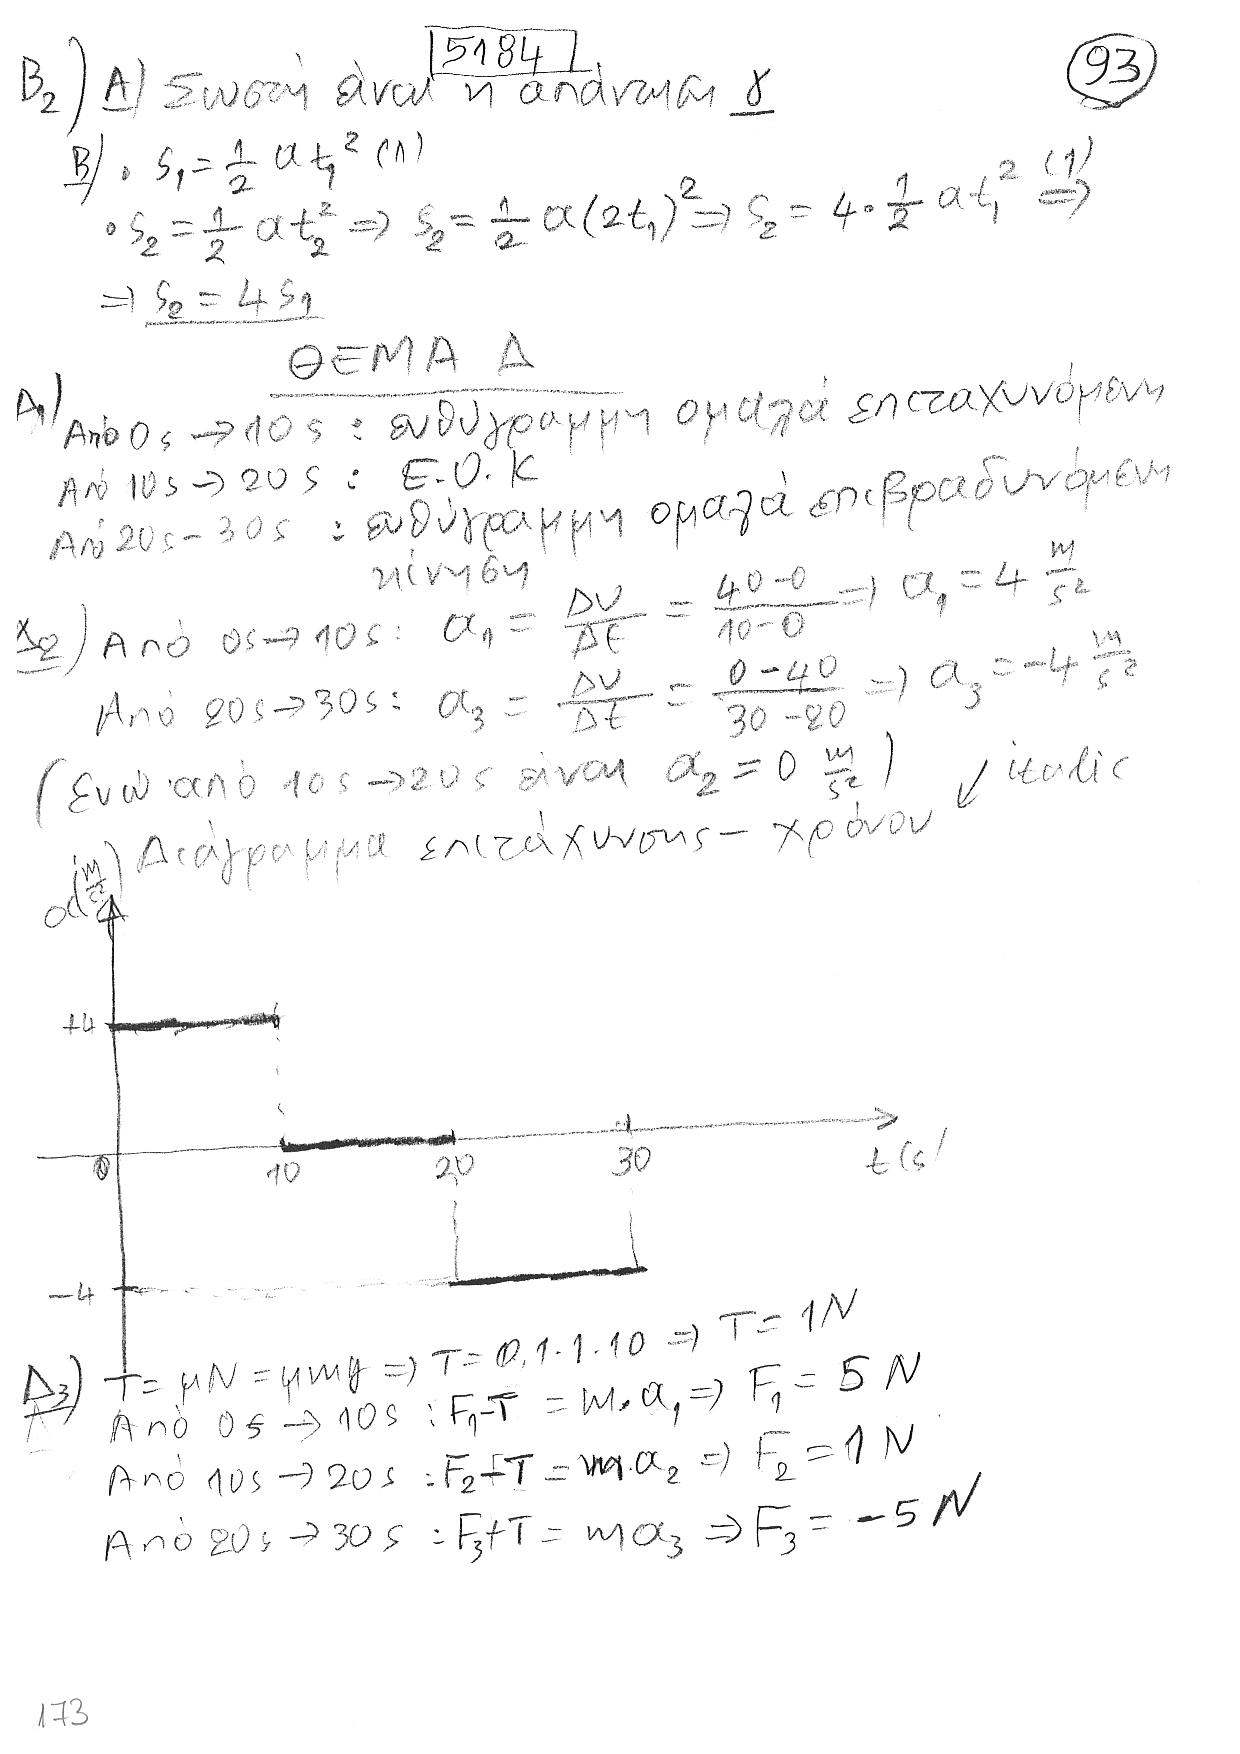 5184
93
B₂) A) Σωστή είναι η απάντηση γ
B) • S₁ = 1/2 α t₁² (1)
• S₂ = 1/2 α t₂² ⇒ S₂ = 1/2 α (2t₁)² ⇒ S₂ = 4 • 1/2 α t₁² (1) ⇒
⇒ S₂ = 4 S₁
ΘΕΜΑ Δ
Δ₁) Από 0s → 10s : ευθύγραμμη ομαλά επιταχυνόμενη
Από 10s → 20s : Ε.Ο.Κ
Από 20s - 30s : ευθύγραμμη ομαλά επιβραδυνόμενη
κίνηση
Δ₂) Από 0s → 10s : α₁ = ΔU/Δt = 40-0/10-0 ⇒ α₁ = 4 m/s²
Από 20s → 30s : α₃ = ΔU/Δt = 0-40/30-20 ⇒ α₃ = -4 m/s²
(Ενώ από 10s → 20s είναι α₂ = 0 m/s²)
↙ italic
Διάγραμμα επιτάχυνσης - χρόνου
α(m/s²)
+4
0 10 20 30 t(s)
-4
Δ₃) T = μN = μmg ⇒ T = 0,1·1·10 ⇒ T = 1N
Από 0s → 10s : F₁-T = m•α₁ ⇒ F₁ = 5 N
Από 10s → 20s : F₂+T = m·α₂ ⇒ F₂ = 1 N
Από 20s → 30s : F₃+T = mα₃ ⇒ F₃ = -5 N
173